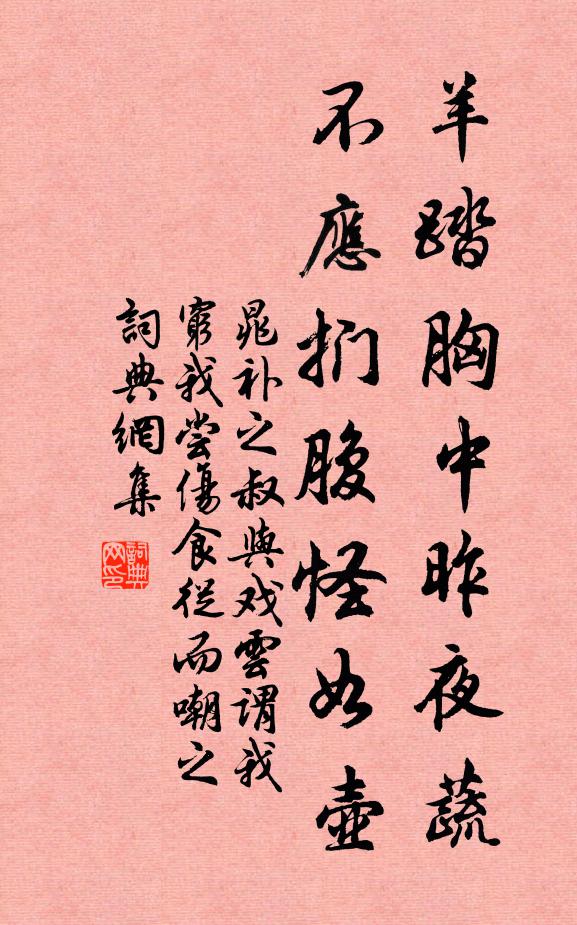 羊踏胸中昨夜蔬
不應捫腹怪如壺
晁补之叔與戏雲謂我
窮我尝傷食從而嘲之
詞典網集
詞典網印